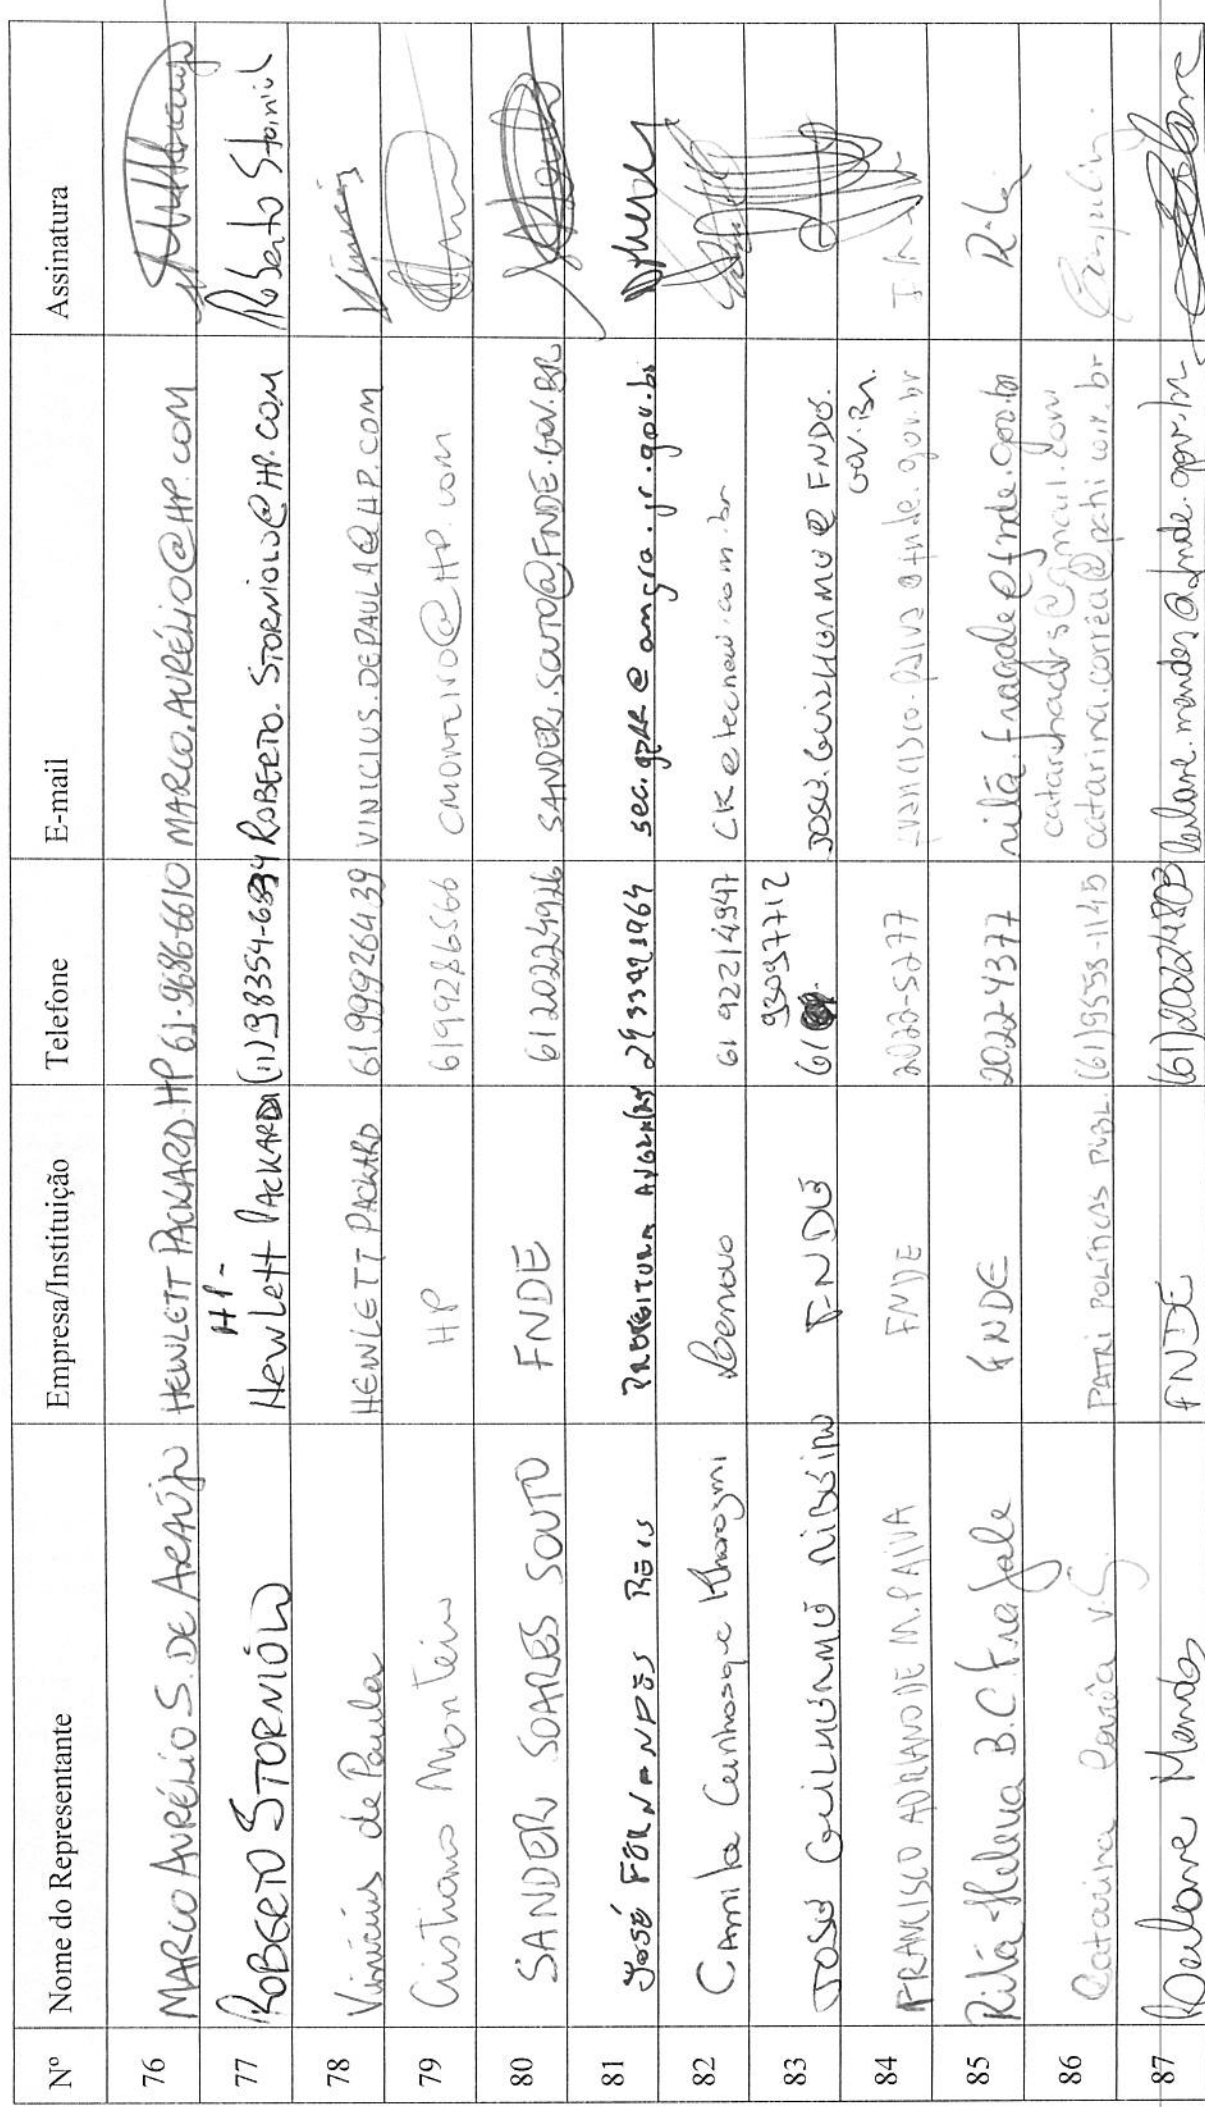 Nº Nome do Representante Empresa/Instituição Telefone E-mail Assinatura
76 MARCO AURÉLIO S. DE ARAÚJO HEWLETT PACKARD-HP 61-96866610 MARCO.AURÉLIO@HP.COM
77 ROBERTO STORNIOLO HP - Hewlett PACKARD (11)98354-6834 ROBERTO.STORNIOLO@HP.COM Roberto Storniol
78 Vinícius de Paula HEWLETT PACKARD 6199926439 VINICIUS.DEPAULA@HP.COM Vinícius
79 Cristiano Monteiro HP 6199286566 CMONTEIRO@HP.COM
80 SANDER SOARES SOUTO FNDE 6120224926 SANDER.SOUTO@FNDE.GOV.BR
81 JOSÉ FERNANDES REIS PREFEITURA sec.@angra.rj.gov.br
82 Camila Khorozmi Lenovo 61 92214947 CK@tecnew.com.br
83 JOSÉ GUILHERME RIBEIRO FNDE 61 93097712 JOSE.GUILHERME@FNDE.
GOV.BR.
84 FRANCISCO ADRIANO DE M. PAIVA FNDE 2022-5277 francisco.paiva@fnde.gov.br
85 Rita Helena B.C. Fragale FNDE 2022-4377 rita.fragale@fnde.gov.br Rita
86 Catarina Corrêa V.S. PATRI POLÍTICAS PUBL. (61)9533-1145 catarina.correa@patri.com.br
87 Mendes FNDE (61)20224803